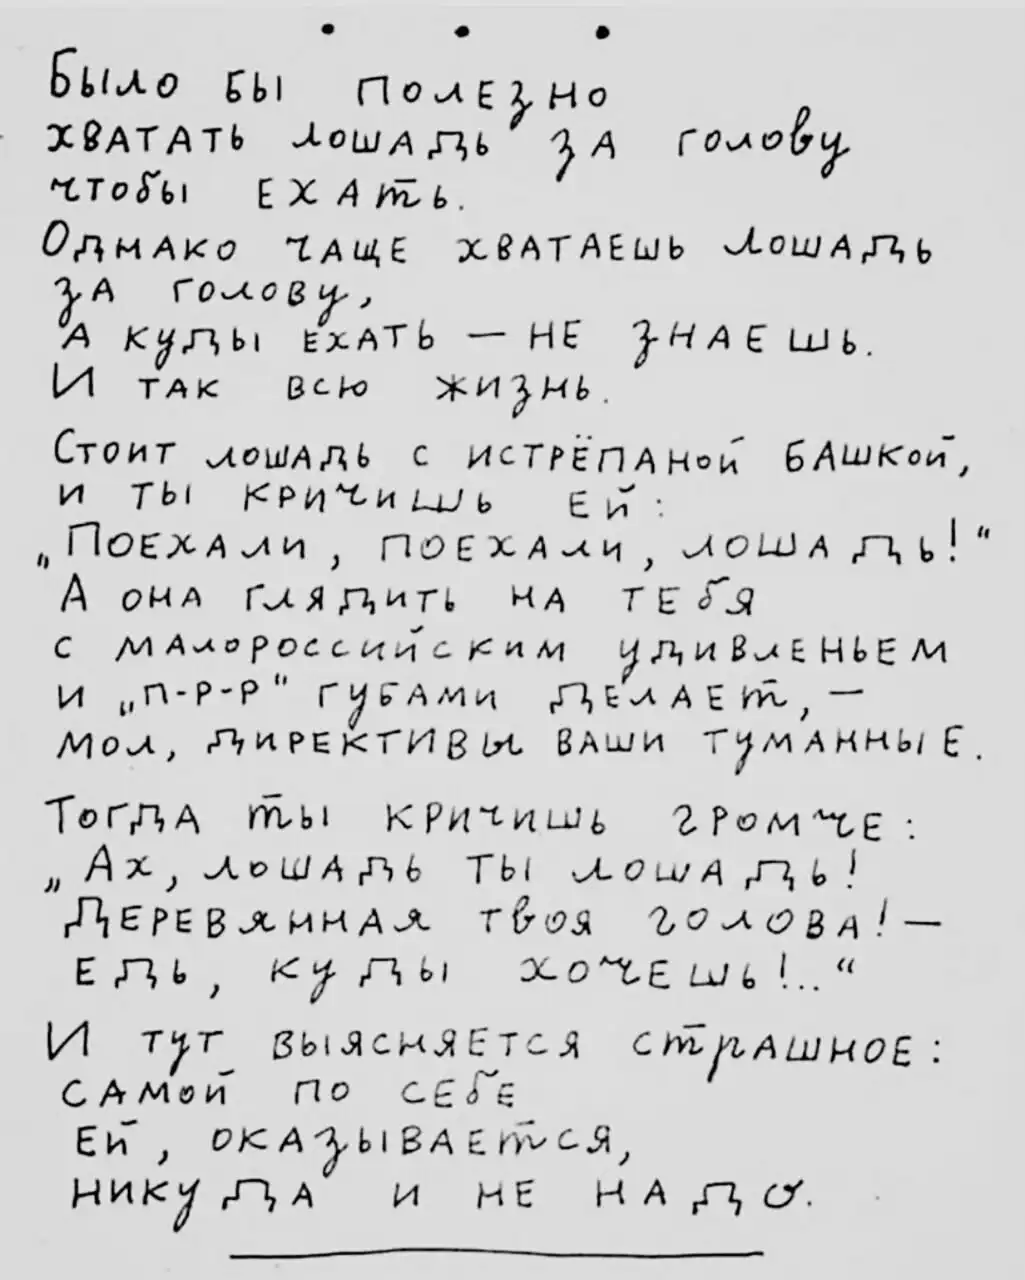 • • •
Было бы полезно
хватать лошадь за голову
чтобы ехать.
Однако чаще хватаешь лошадь
за голову,
а куды ехать — не знаешь.
И так всю жизнь.
Стоит лошадь с истрёпаной башкой,
и ты кричишь ей:
„Поехали, поехали, лошадь!“
А она глядить на тебя
с малороссийским удивленьем
и „п-р-р“ губами делает, —
мол, директивы ваши туманные.
Тогда ты кричишь громче:
„Ах, лошадь ты лошадь!
Деревянная твоя голова! —
Едь, куды хочешь!..“
И тут выясняется страшное:
самой по себе
ей, оказывается,
никуда и не надо.